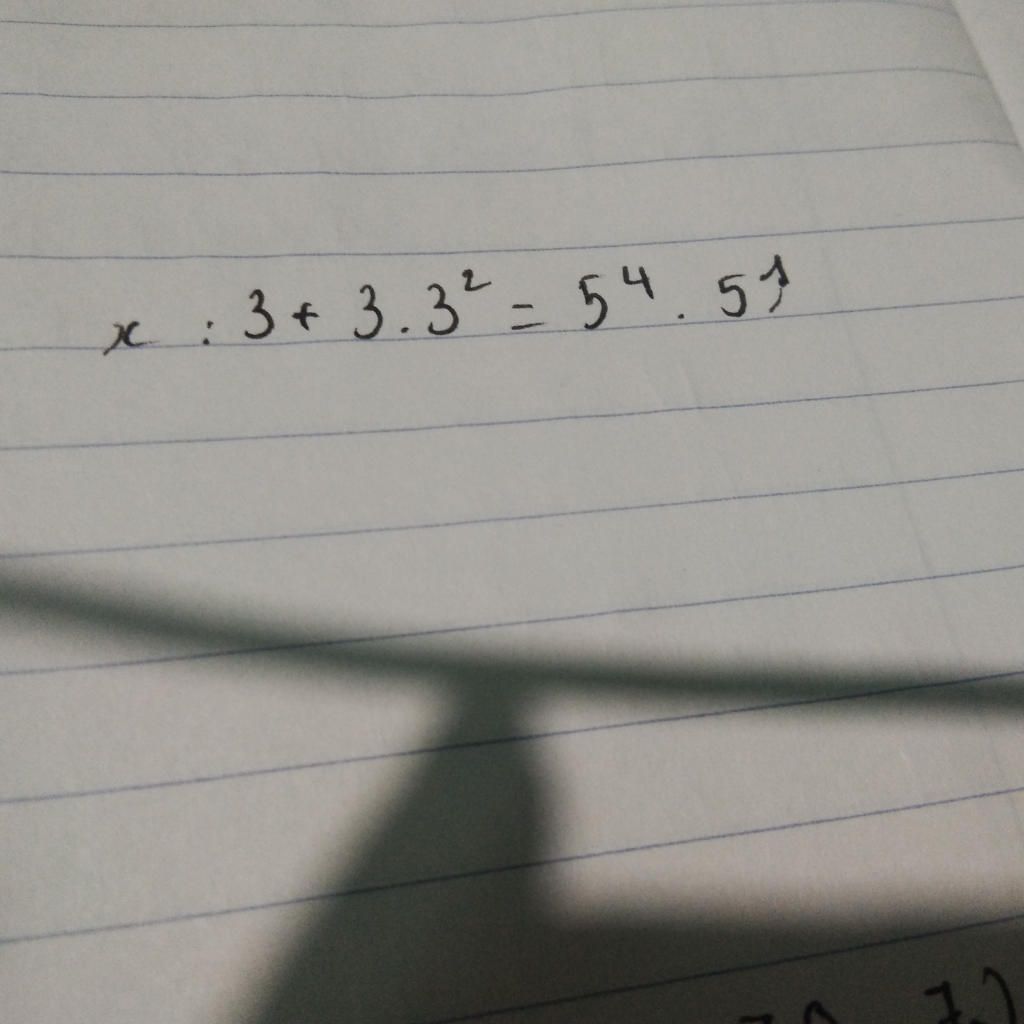 x : 3 + 3 . 3² = 5⁴ . 5¹
7)